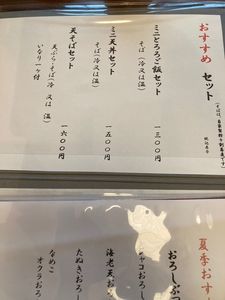 おすすめ セット
ミニとろろご飯セット
そば(冷 又は 温)
一三〇〇円
ミニ天丼セット
そば(冷 又は 温)
一五〇〇円
天そばセット
天ぷら・そば(冷 又は 温)
いなり一ヶ付
一六〇〇円
夏季おす
おろしぶ
ジャコおろし
海老天おろ
たぬきおろし
なめこ
オクラおろし